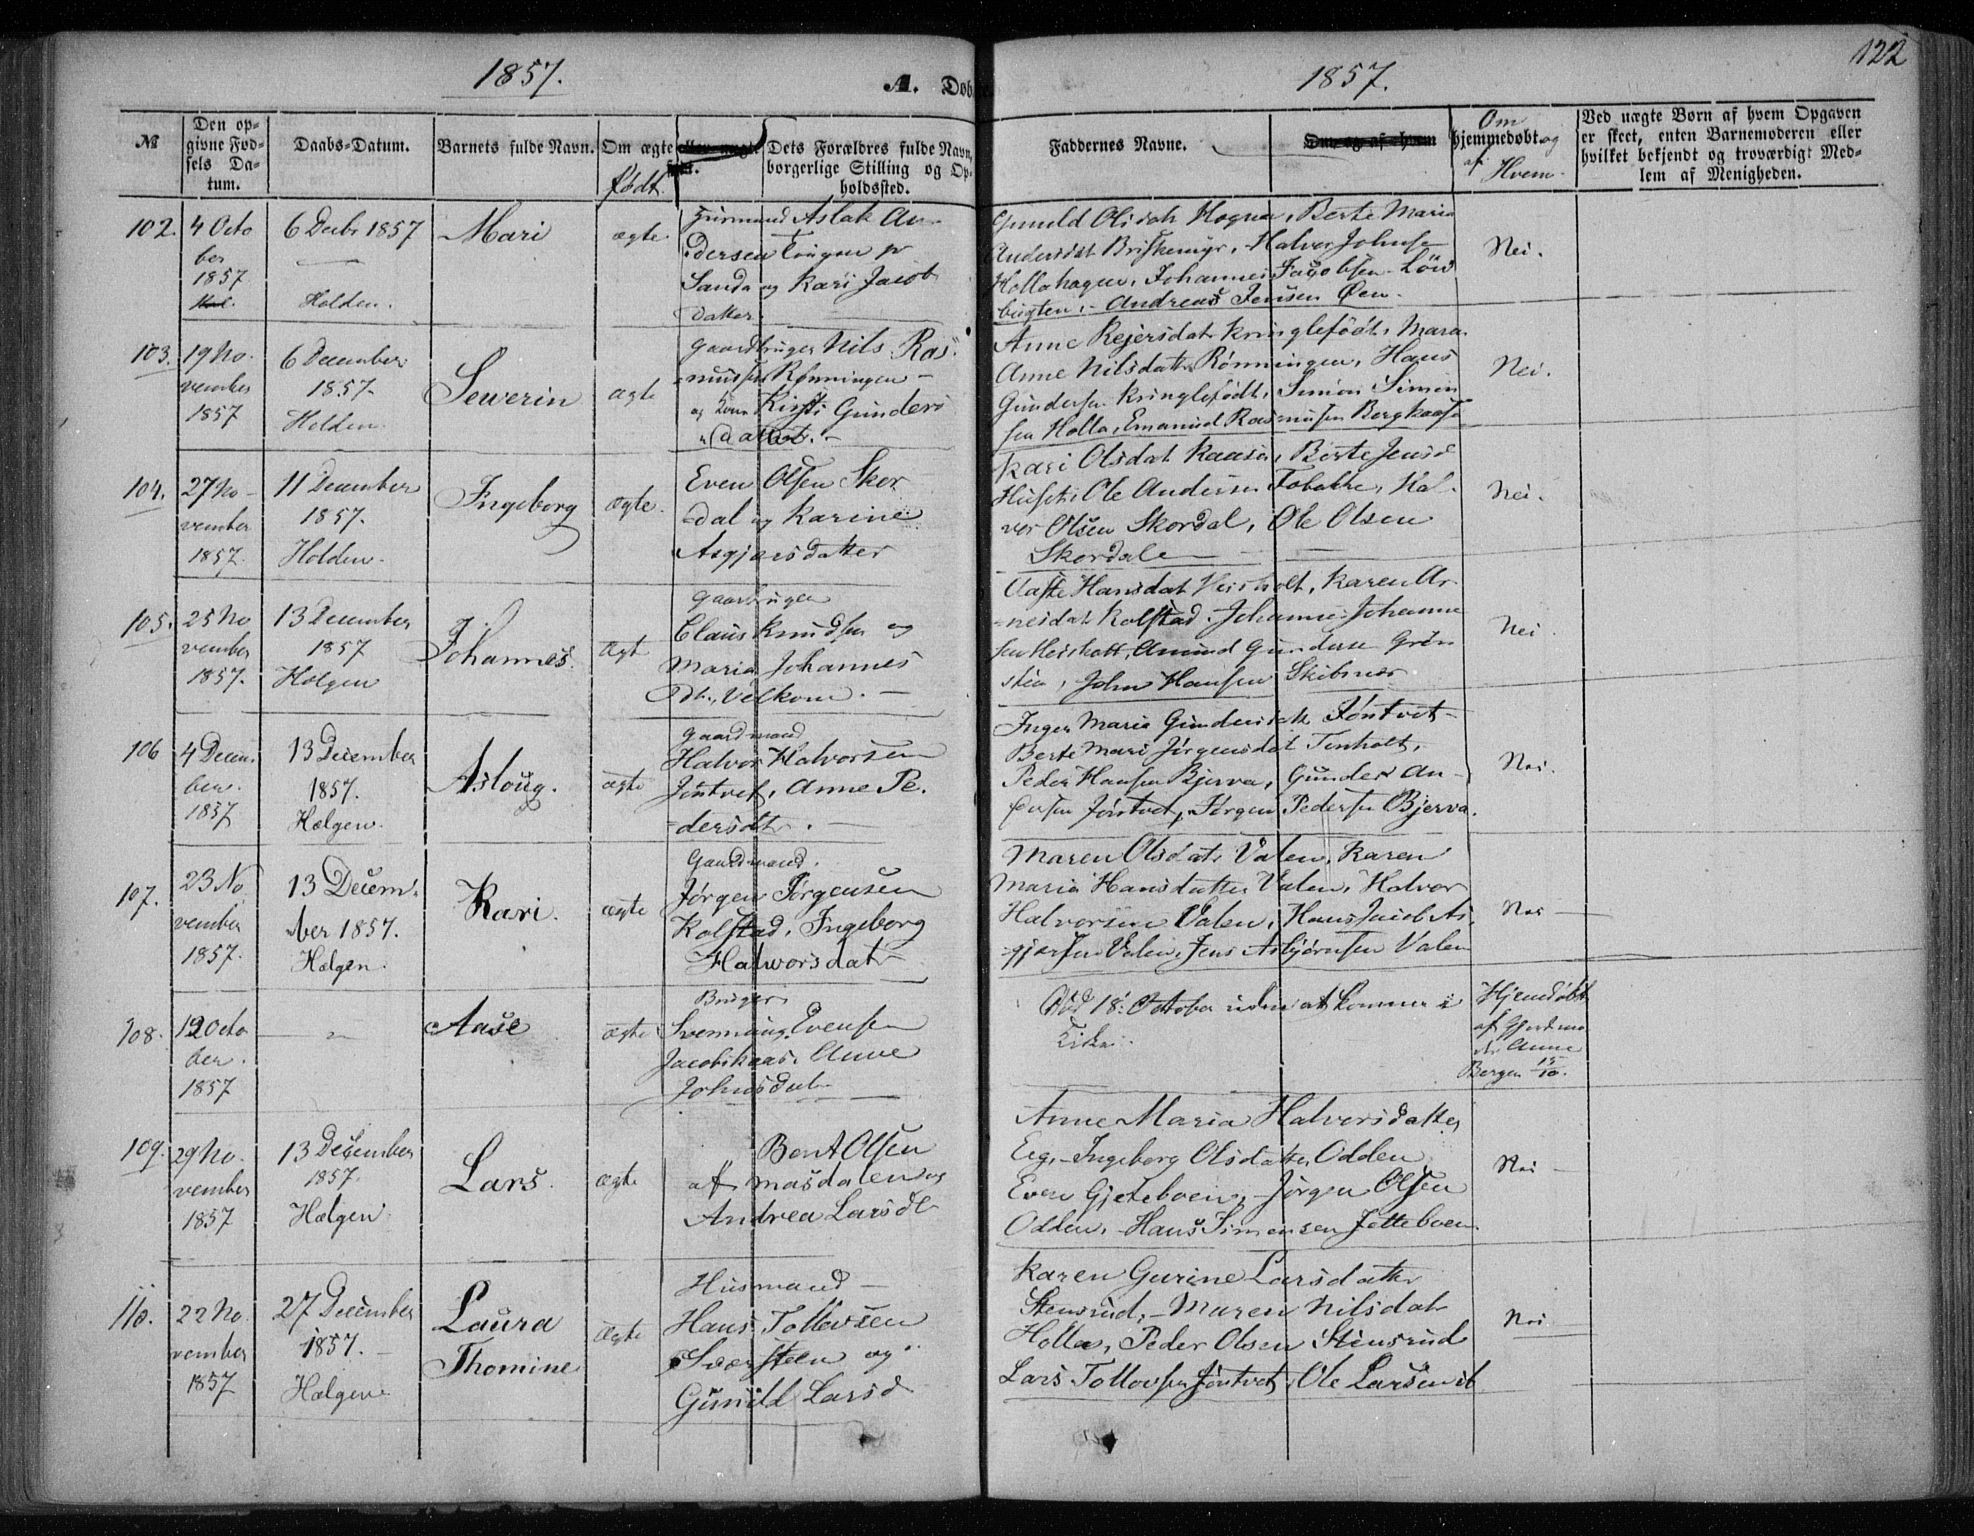 1857.
A. Døb
1857.
122
№
Den op-
givne Fød-
sels Da-
tum.
Daabs-Datum.
Barnets fulde Navn.
Om ægte
født.
Dets Forældres fulde Navn,
borgerlige Stilling og Op-
holdssted.
Faddernes Navne.
Om og af hvem
Om
hjemmedøbt og
af Hvem
Ved uægte Børn af hvem Opgaven
er skeet, enten Barnemoderen eller
hvilket bekjendt og troværdigt Med-
lem af Menigheden.
102.
4 Octo
ber
1857
6 Decbr 1857
Holden.
Mari
ægte.
Aslak An-
dersen
Sanda og Kari Jacob
datter.
Gunild Olsdat Hogna, Berte Maria
Andersdat Briskemyr, Halvor Johnse
Hollahagen, Johannes Jacobsen
bugten, Andreas Jensen Øen.
Nei.
103.
19 No-
vember
1857
6 December
1857.
Holden
Sewerin
ægte
Gaardbruger Nils Ras-
musses Rønningen
og Kone Kirsti Gunders
datter.
Anne Rejersdat Kringlefødt, Mara
Anne Nilsdatt Rønningen, Hans
Gundersen Kringlefødt, Simon Simon
sen Holla, Emanuel Rasmusen Bergkaasa
Nei.
104.
27 No-
vember
1857.
11 December
1857.
Holden.
Ingeborg
ægte.
Even Olsen Skor
dal og Karine
Asgjersdatter
Kari Olsdat Kaasa, Berte Jensd
Huset, Ole Andersen Tobakke, Hal-
vor Olsen Skordal, Ole Olsen
Skordale
Nei.
105.
25 No
vember
1857.
13 December
1857
Hælgen
Johannes.
ægt
Gaardbruger
Claus Knudsen og
Maria Johannes
Dtr. Velkom.
Aaste Hansdat Versholt, Karen Ar-
nesdat Kolstad, Johannes Johanne
sen Hersholt, Amund Gunderse Grøn
stein, John Hansen Skibsnes
Nei.
106
4 Decem
ber.
1857
13 December
1857.
Hælgen.
Asloug.
ægte
Gaardmand
Halvor Halvorsen
Jøntvet, Anne Pe-
dersdtr.
Inger Maria Gundersdt Jøntvet
Berte Mari Jørgensdat Tinholt,
Peder Hansen Bjerva, Gunder An-
dersen Jøntvet, Jørgen Pedersen Bjerva.
Nei.
107.
23 No
vember
1857.
13 Decem-
ber 1857.
Hælgen.
Kari.
ægte
Gaardmand.
Jørgen Jørgensen
Kolstad, Ingeborg
Halworsdat
Maren Olsdat Valen, Karen
Maria Hansdatter Valen, Halvor
Halvorsen Valen, Hans Jacob As
gjersen Valen, Jens Asbjørnsen Valen
Nei
108.
12 Octo
ber.
1857
Aase
ægte
Bruger
Svennung Evensen
Jacobskaas, Anne
Johnsdat
Død 18. October uden at komme i
Kirke.
Hjemdøbt
af Gjordmo
dr Anne
Bergen 15/10.
109.
29 No-
vember
1857
13 December
1857.
Hælgen
Lars.
ægte
Bent Olsen
af Masdalen og
Andrea Larsdt
Anne Maria Halvorsdatter
Eeg, Ingeborg Olsdatter Odden
Even Gjeteboen, Jørgen Olsen
Odden, Hans Simensen Jetteboen
Nei
110.
22 No
vember
1857
27 December
1857.
Hælgen
Laura
Thomine
Ægte
Husmand
Hans Tollevsen
Sværsteen og
Gunild Larsd
Karen Gurine Larsdatter
Stensrud, Maren Nilsdat
Holla, Peder Olsen Stensrud
Lars Tollovsen Jøntvet, Ole Larsen
Nei